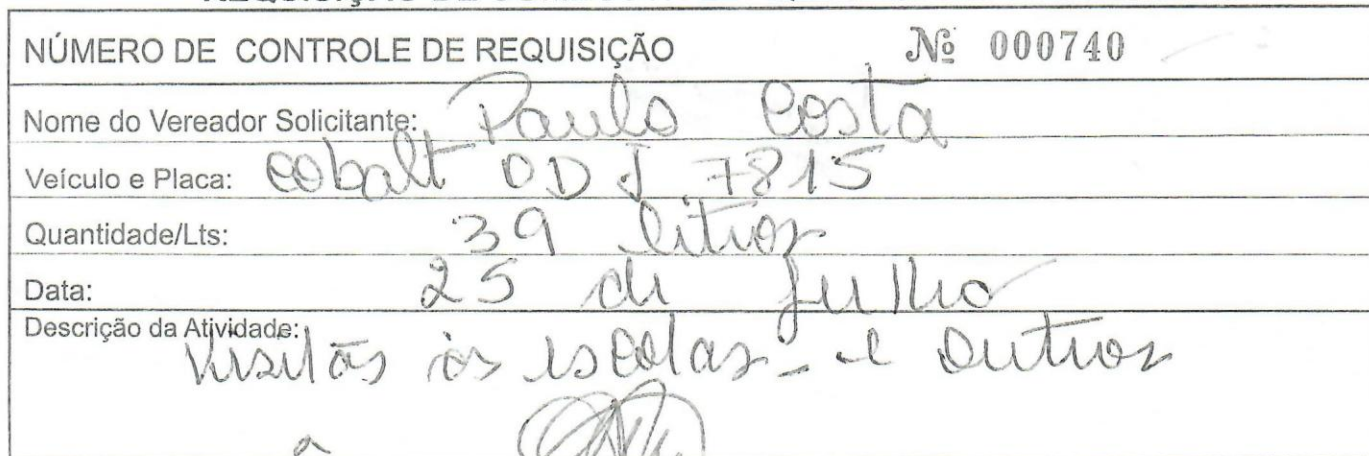 NÚMERO DE CONTROLE DE REQUISIÇÃO Nº 000740
Nome do Vereador Solicitante: Paulo Costa
Veículo e Placa: Cobalt ODJ 7815
Quantidade/Lts: 39 litros
Data: 25 de julho
Descrição da Atividade:
Visitas às escolas - e outros